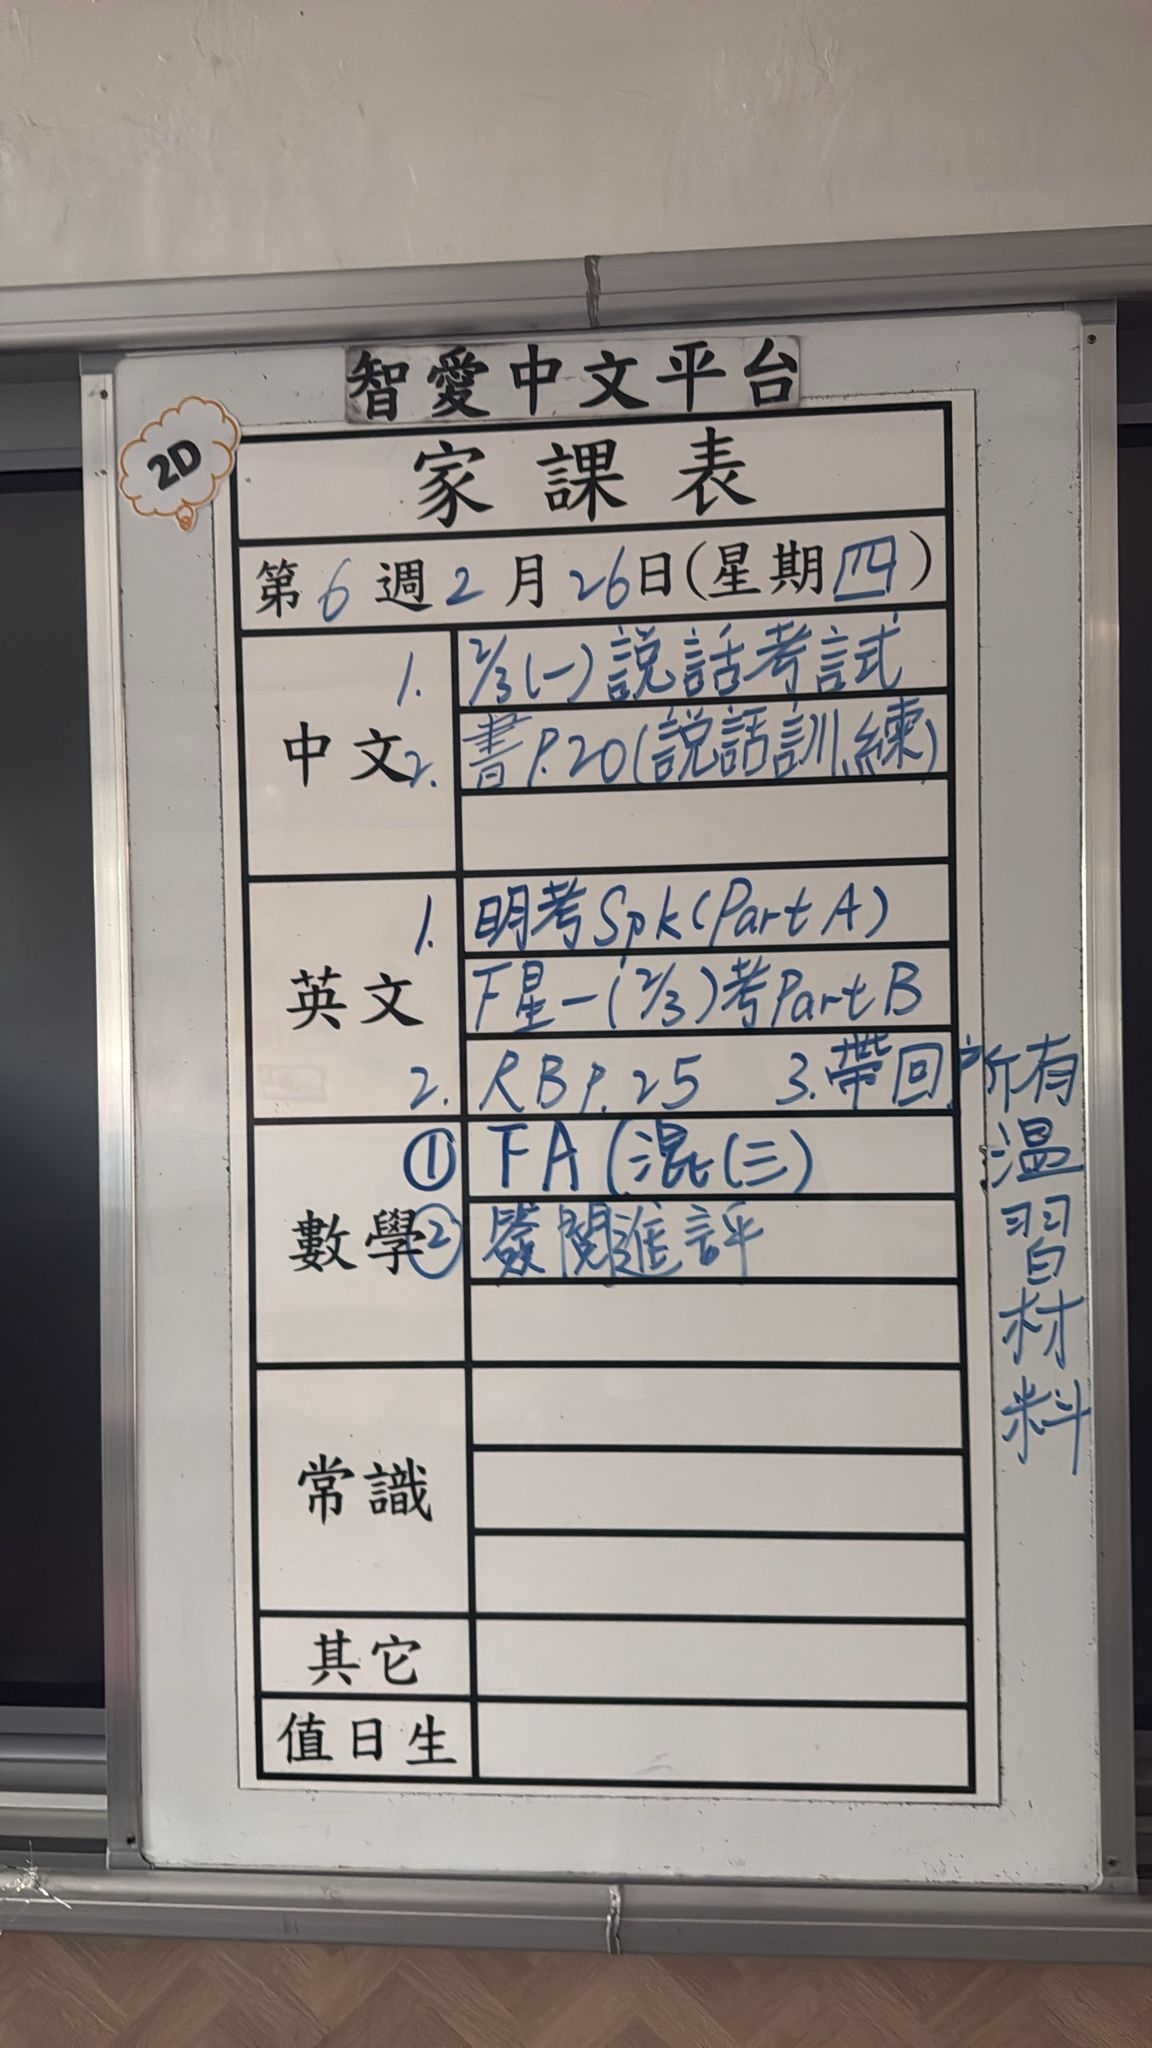 智愛中文平台
2D
家課表
第6週2月26日(星期四)
中文
1. 2/3(一)說話考試
2. 書P.20(說話訓練)
英文
1. 明考Spk(Part A)
下星一(2/3)考Part B
2. RB P.25 3.帶回所有
溫習材料
數學
① FA(混(三)
② 簽閱進評
常識
其它
值日生